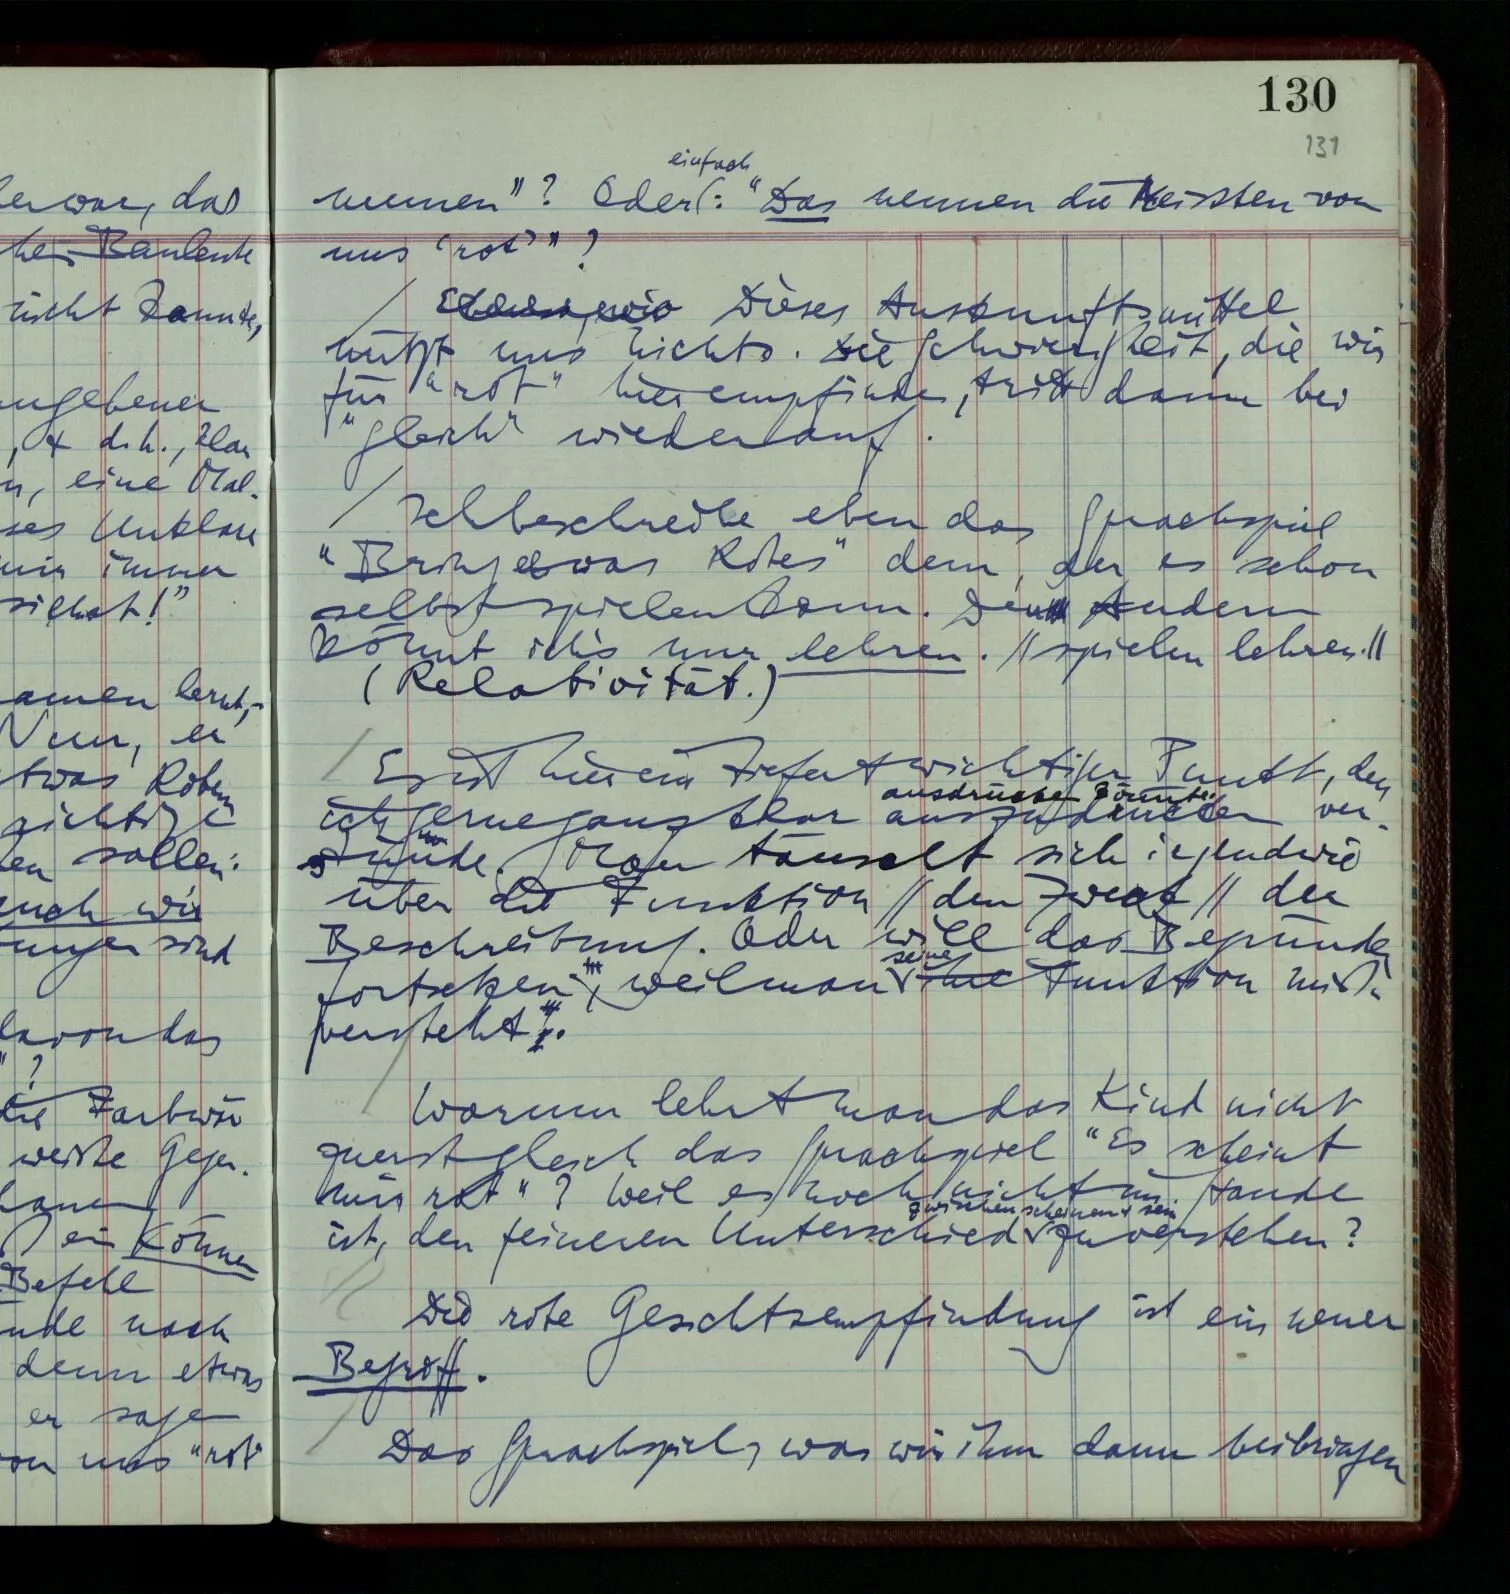 er war, das
he Bauleute
nicht kannte,
angebener
, & d.h., klar
n, eine Mal-
ses Unklare
mir immer
sieh hat!"
amen lernt, -
Nun, er
etwas Rotem
richtige
en sollen:
auch wir
ungen sind
davon das
"?
die Farbwör
weiße Gegen-
hauen
ein Können
Befehl
nde nach
denn etwas
er sage
von uns "rot"
130
131
einfach
nennen"? Oder: "Das nennen die Meisten von
uns 'rot'"?
/ Dieses Auskunftsmittel
nützt uns nichts. Die Schwierigkeit, die wir
für "rot" hier empfinden, tritt dann bei
"gleich" wieder auf.
/ Ich beschreibe eben das Sprachspiel
"Bring etwas Rotes" dem, der es schon
selbst spielen kann. Den Andern
könnt ich's nur lehren. // spielen lehren. //
(Relativität.)
/ Es ist hier ein tiefer & wichtiger Punkt, den
ausdrücken könnte.
ich gerne ganz klar auszudrücken ver-
stünde. Man täuscht sich irgendwie
über die Funktion // den Zweck // der
Beschreibung. Oder will das Begründen
seine
fortsetzen, weil man ihre Funktion miß-
versteht.
/ Warum lehrt man das Kind nicht
zuerst gleich das Sprachspiel "Es scheint
mir rot"? Weil es noch nicht im Stande
zwischen scheinen & sein
ist, den feineren Unterschied zu verstehen?
Die rote Gesichtsempfindung ist ein neuer
Begriff.
/ Das Sprachspiel, was wir ihm dann beibringen